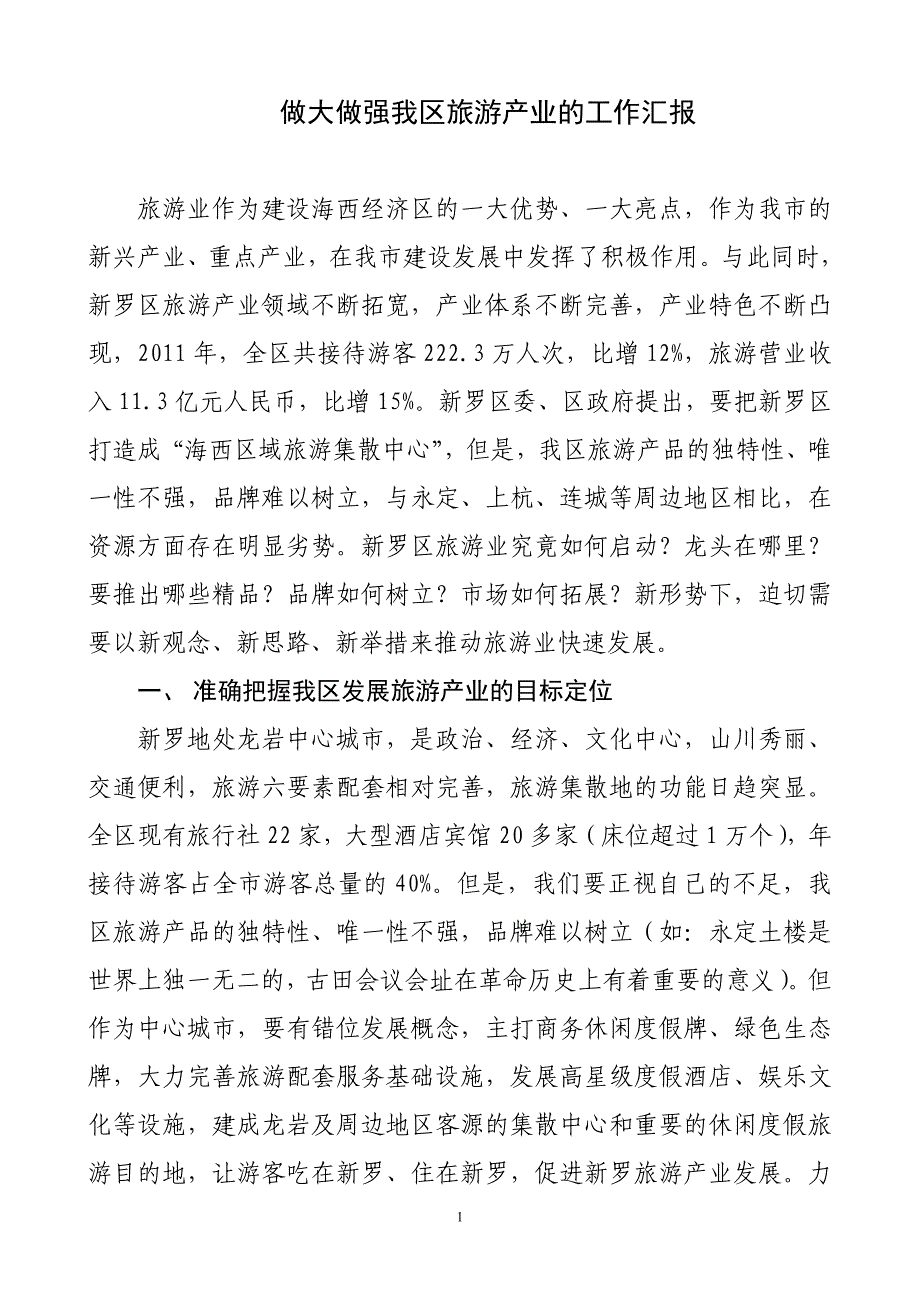 做大做强我区旅游产业的工作汇报
旅游业作为建设海西经济区的一大优势、一大亮点，作为我市的
新兴产业、重点产业，在我市建设发展中发挥了积极作用。与此同时，
新罗区旅游产业领域不断拓宽，产业体系不断完善，产业特色不断凸
现，2011年，全区共接待游客222.3万人次，比增12%，旅游营业收
入11.3亿元人民币，比增15%。新罗区委、区政府提出，要把新罗区
打造成“海西区域旅游集散中心”，但是，我区旅游产品的独特性、唯
一性不强，品牌难以树立，与永定、上杭、连城等周边地区相比，在
资源方面存在明显劣势。新罗区旅游业究竟如何启动？龙头在哪里？
要推出哪些精品？品牌如何树立？市场如何拓展？新形势下，迫切需
要以新观念、新思路、新举措来推动旅游业快速发展。
一、 准确把握我区发展旅游产业的目标定位
新罗地处龙岩中心城市，是政治、经济、文化中心，山川秀丽、
交通便利，旅游六要素配套相对完善，旅游集散地的功能日趋突显。
全区现有旅行社22家，大型酒店宾馆20多家（床位超过1万个），年
接待游客占全市游客总量的40%。但是，我们要正视自己的不足，我
区旅游产品的独特性、唯一性不强，品牌难以树立（如：永定土楼是
世界上独一无二的，古田会议会址在革命历史上有着重要的意义）。但
作为中心城市，要有错位发展概念，主打商务休闲度假牌、绿色生态
牌，大力完善旅游配套服务基础设施，发展高星级度假酒店、娱乐文
化等设施，建成龙岩及周边地区客源的集散中心和重要的休闲度假旅
游目的地，让游客吃在新罗、住在新罗，促进新罗旅游产业发展。力
1